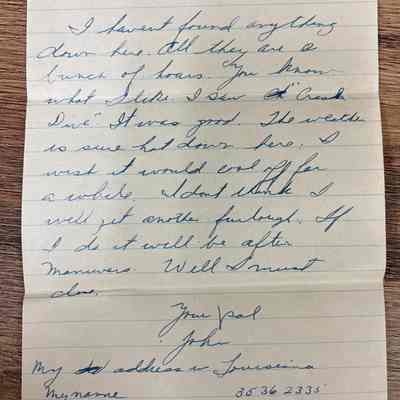 I havent found anything
down here. All they are a
bunch of hoars. You know
what I like. I saw "Crash
Dive" It was good. The weather
is sure hot down here. I
wish it would cool off for
a while. I dont think I
will get another furlough. If
I do it will be after
manuvers. Well I must
close.
Your pal
John
My address in Louisiana
My name 3536 2335